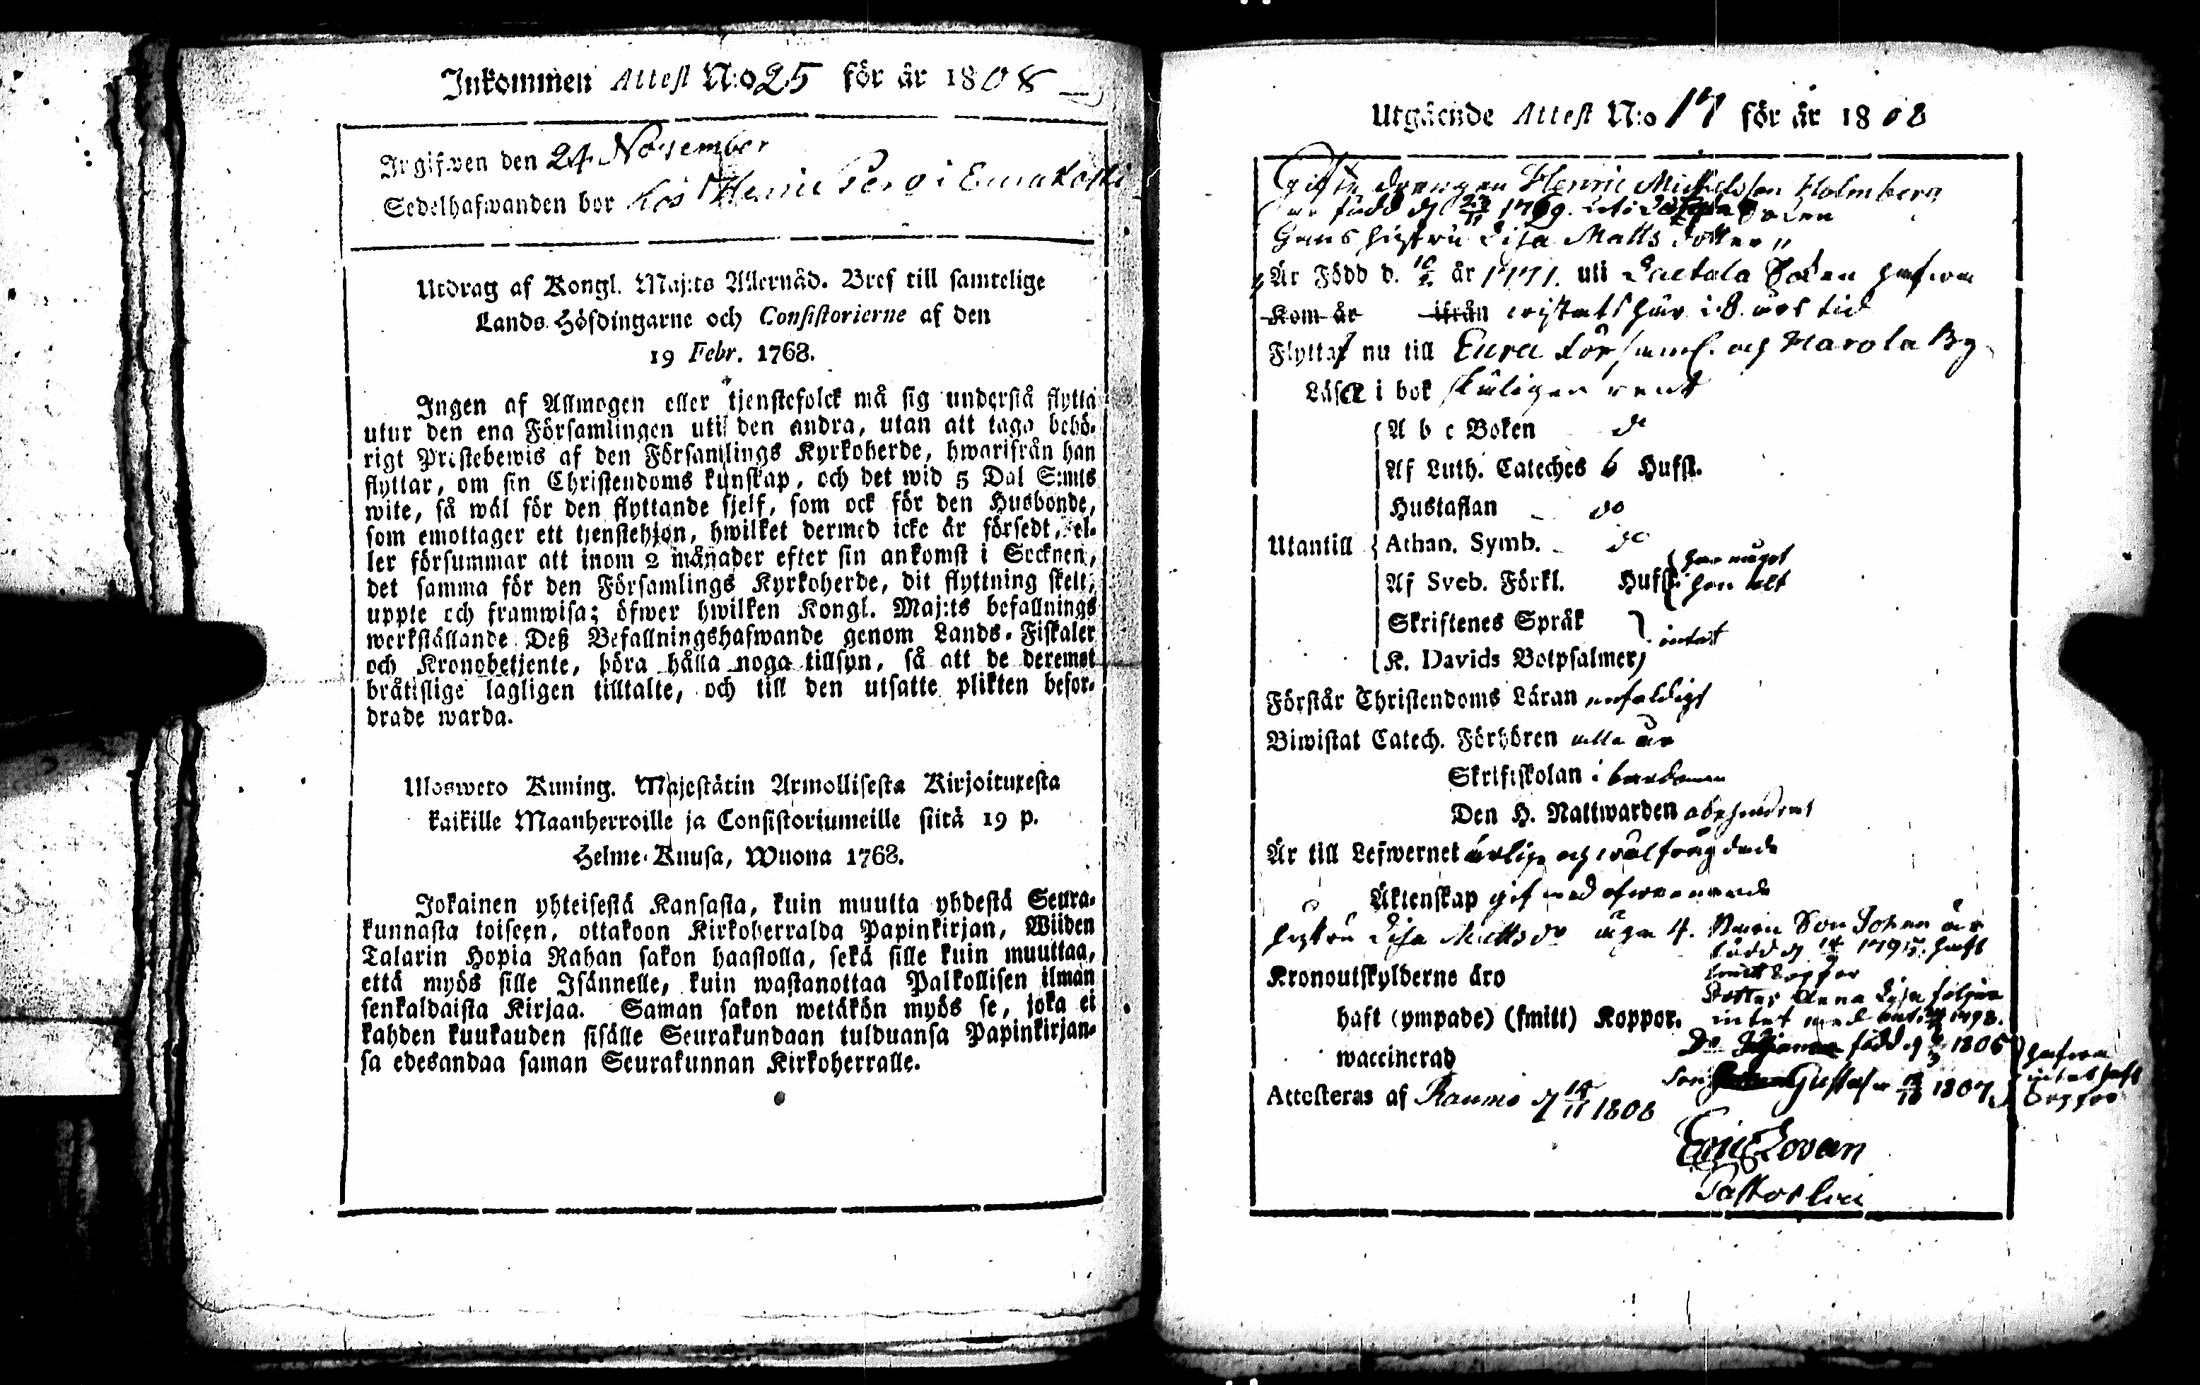 Inkommen Attest N:o 25 för år 1808
Ingifwen den 24 November
Sedelhafwanden bor hos Henric Berg i Eurakoski
Utdrag af Kongl. Maj:ts Allernåd. Bref till samtelige
Lands-Höfdingarne och Consistorierne af den
19 Febr. 1768.
Ingen af Allmogen eller tjenstefolck må sig understå flytta
utur den ena Församlingen uti den andra, utan att taga behö-
rigt Prästebewis af den Församlings Kyrkoherde, hwarifrån han
flyttar, om sin Christendoms kunskap, och det wid 5 Dal S:mts
wite, så wäl för den flyttande sjelf, som ock för den Husbonde,
som emottager ett tjenstehjon, hwilket dermed icke är försedt, el-
ler försummar att inom 2 månader efter sin ankomst i Socknen,
det samma för den Församlings Kyrkoherde, dit flyttning skelt,
uppte och framwisa; öfwer hwilken Kongl. Maj:ts befallnings
werkställande Deß Befallningshafwande genom Lands-Fiskaler
och Kronobetjente, böra hålla noga tillsyn, så att de deremot
bråtislige lagligen tilltalte, och till den utsatte plikten befor-
drade warda.
Ulosweto Kuning. Majestätin Armollisesta Kirjoituxesta
kaikille Maanherroille ja Consistoriumeille siitä 19 p.
Helme-Kuusa, Wuona 1768.
Jokainen yhteisestä Kansasta, kuin muutta yhdestä Seura-
kunnasta toiseen, ottakoon Kirkoherralda Papinkirjan, Wiiden
Talarin Hopia Rahan sakon haastolla, sekä sille kuin muuttaa,
että myös sille Isännelle, kuin wastanottaa Palkollisen ilman
senkaldaista Kirjaa. Saman sakon wetäkön myös se, joka ei
kahden kuukauden sisälle Seurakundaan tulduansa Papinkirjan-
sa edesandaa saman Seurakunnan Kirkoherralle.
Utgående Attest N:o 17 för år 1808
Gifte drengen Henric Michelsson Holmberg
är född d 1769. uti Socken
Hans hustru Lisa Matts dotter
Är Född d. 10/2 år 1771. uti Socken hafwa
Kom år ifrån wistats här i 8. års tid
Flytta nu till Eura Församl. och Narola By
Läsa i bok skäligen rent
A b c Boken do
Af Luth. Cateches 6 Hufst.
Hustaflan do
Utantill Athan. Symb. do
Af Sveb. Förkl. Hufst. han något
hon alt
Skriftenes Språk
K. Davids Botpsalmer intet
Förstår Christendoms Läran enfaldigt
Biwistat Catech. Förhören alla år
Skriftskolan i barndomen
Den H. Nattwarden
Är till Lefwernet ärlige och wälfrägdade
Äktenskap gift med
hustru Lisa Mattsdr äga 4. Barn Son Johan är
född d 1795. haft
Kronoutskylderne äro koppor
Dotter Anna Lisa följer
haft (ympade) (smitt) Koppor. intet med 1798.
Do född d 1805 hafwa
waccinerad Son Gustaf 1807 intet haft
koppor
Attesteras af Raumo d 14/11 1808
Eric Lovén
Past. loci